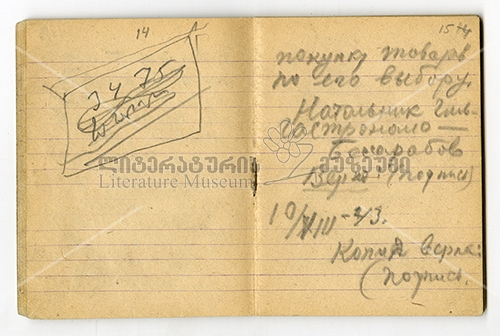 14
34 75
15
покупку товаров
по его выбору.
Начальник
Гастронома —
Бенарабов
Верно (подпись)
ლიტერატურის მუზეუმი
Literature Museum
10/VIII-43.
Копия верна:
(подпись.